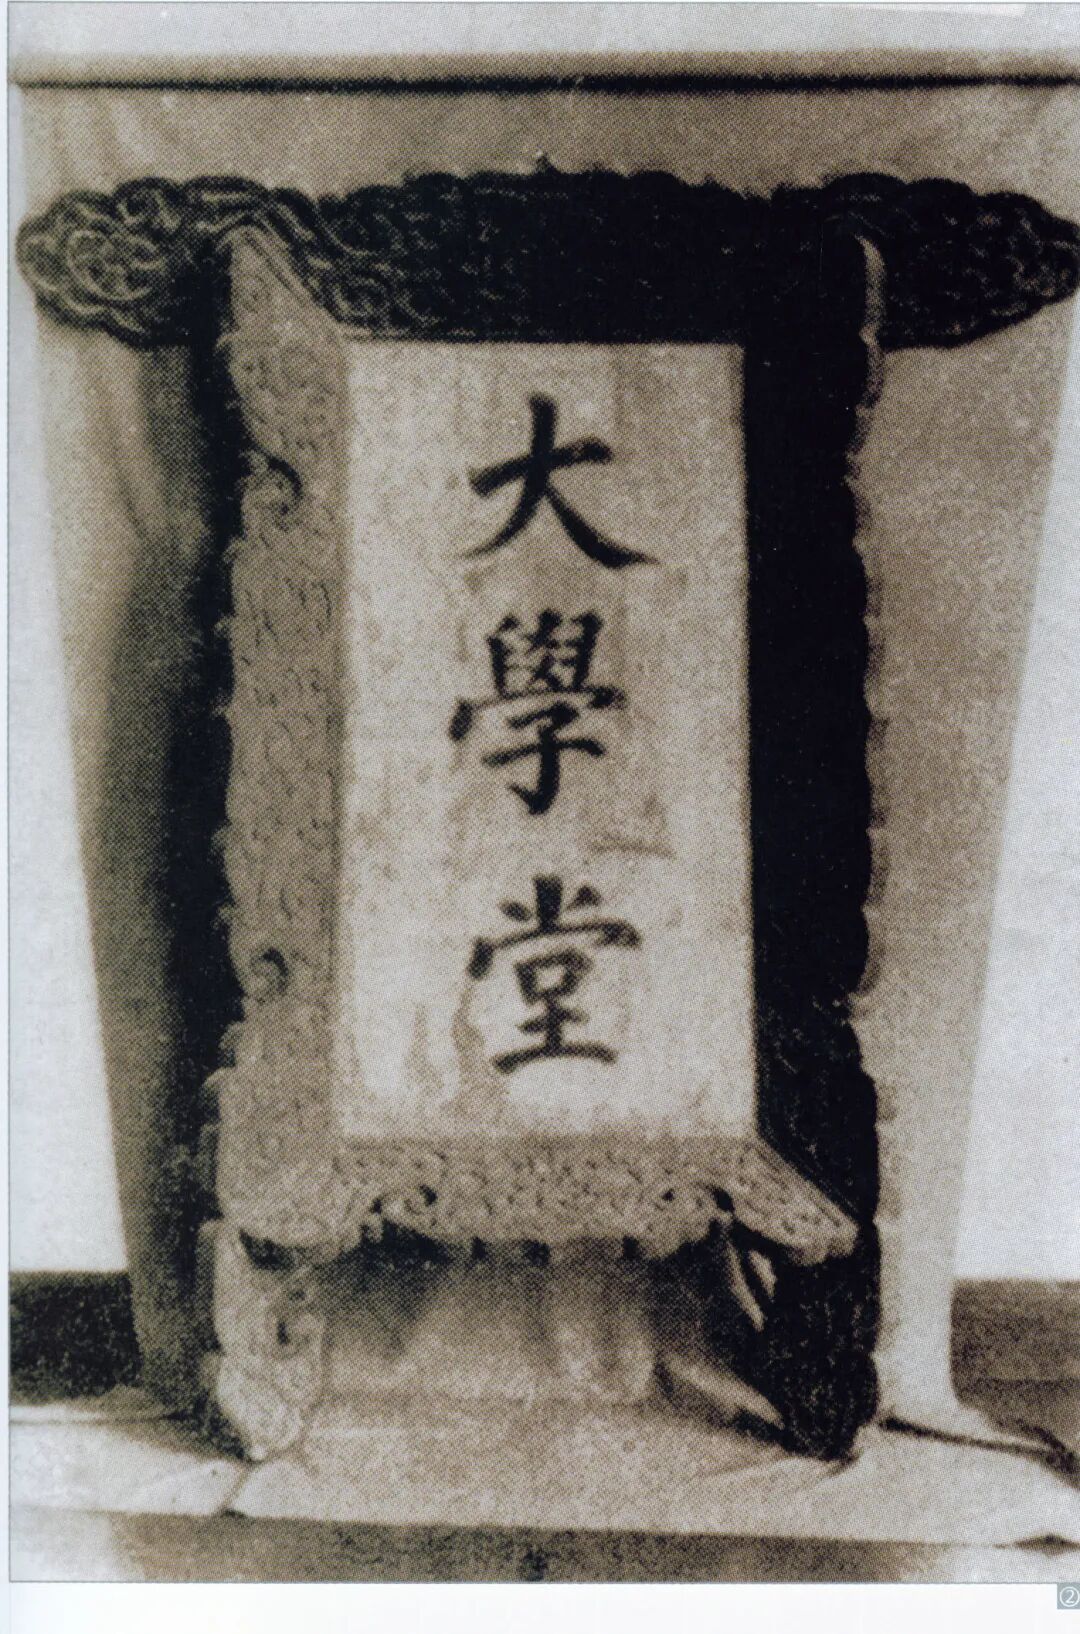 大學堂
②